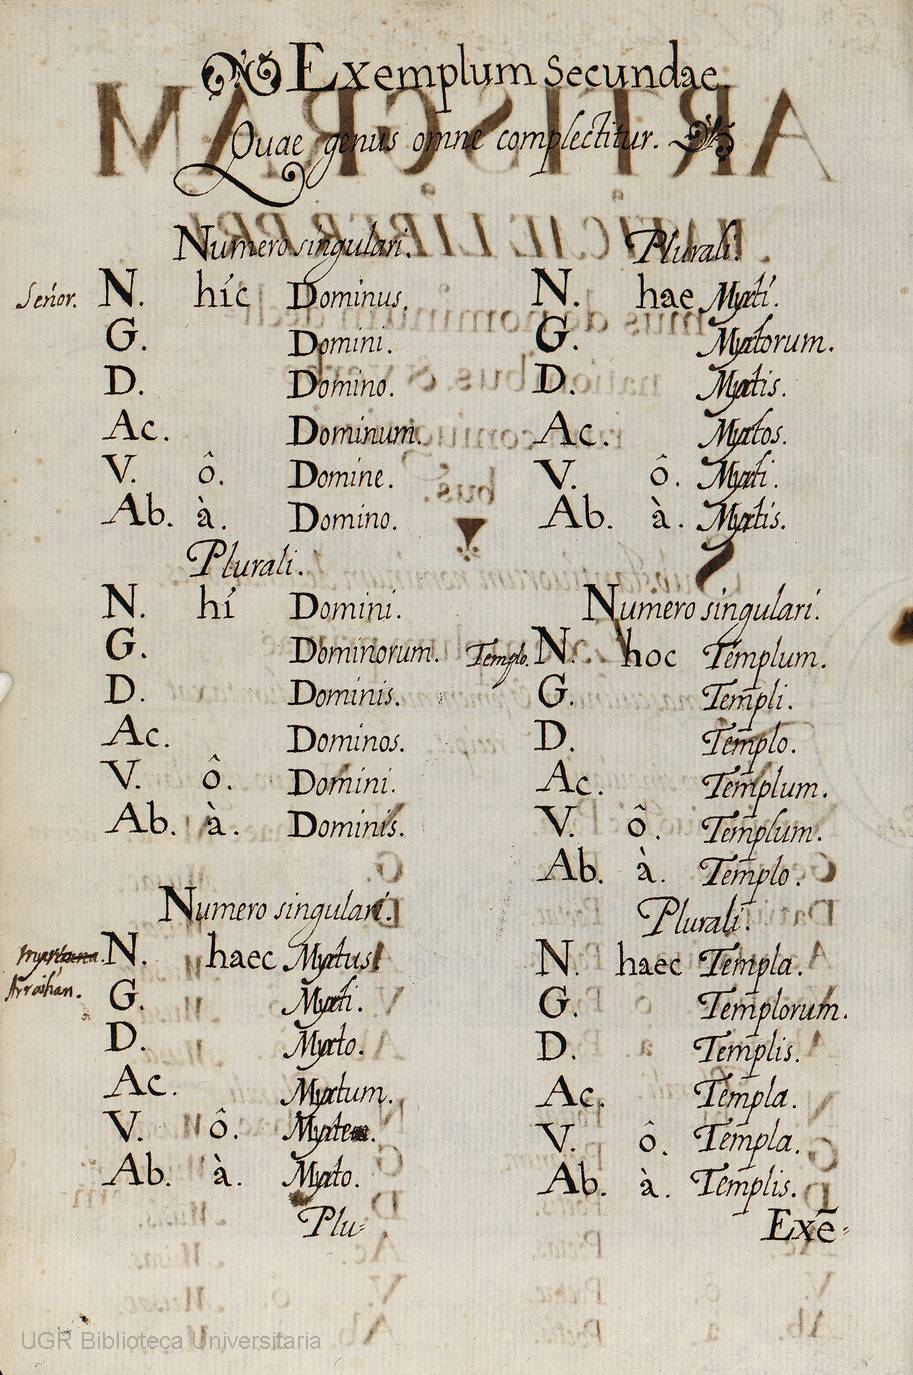 Exemplum Secundae.
Quae genus omne complectitur.
Numero singulari.
Señor. N. híc Dominus.
G. Domini.
D. Domino.
Ac. Dominum.
V. ô. Domine.
Ab. à. Domino.
Plurali.
N. hí Domini.
G. Dominorum.
D. Dominis.
Ac. Dominos.
V. ô. Domini.
Ab. à. Dominis.
Numero singulari.
N. haec Myrtus
Arraihan.
G. Myrti.
D. Myrto.
Ac. Myrtum.
V. ô. Myrte.
Ab. à. Myrto.
Plu-
Plurali.
N. hae Myrti.
G. Myrtorum.
D. Myrtis.
Ac. Myrtos.
V. ô. Myrti.
Ab. à. Myrtis.
Numero singulari.
Templo. N. hoc Templum.
G. Templi.
D. Templo.
Ac. Templum.
V. ô. Templum.
Ab. à. Templo.
Plurali.
N. haec Templa.
G. Templorum.
D. Templis.
Ac. Templa.
V. ô. Templa.
Ab. à. Templis.
Exē-
UGR Biblioteca Universitaria